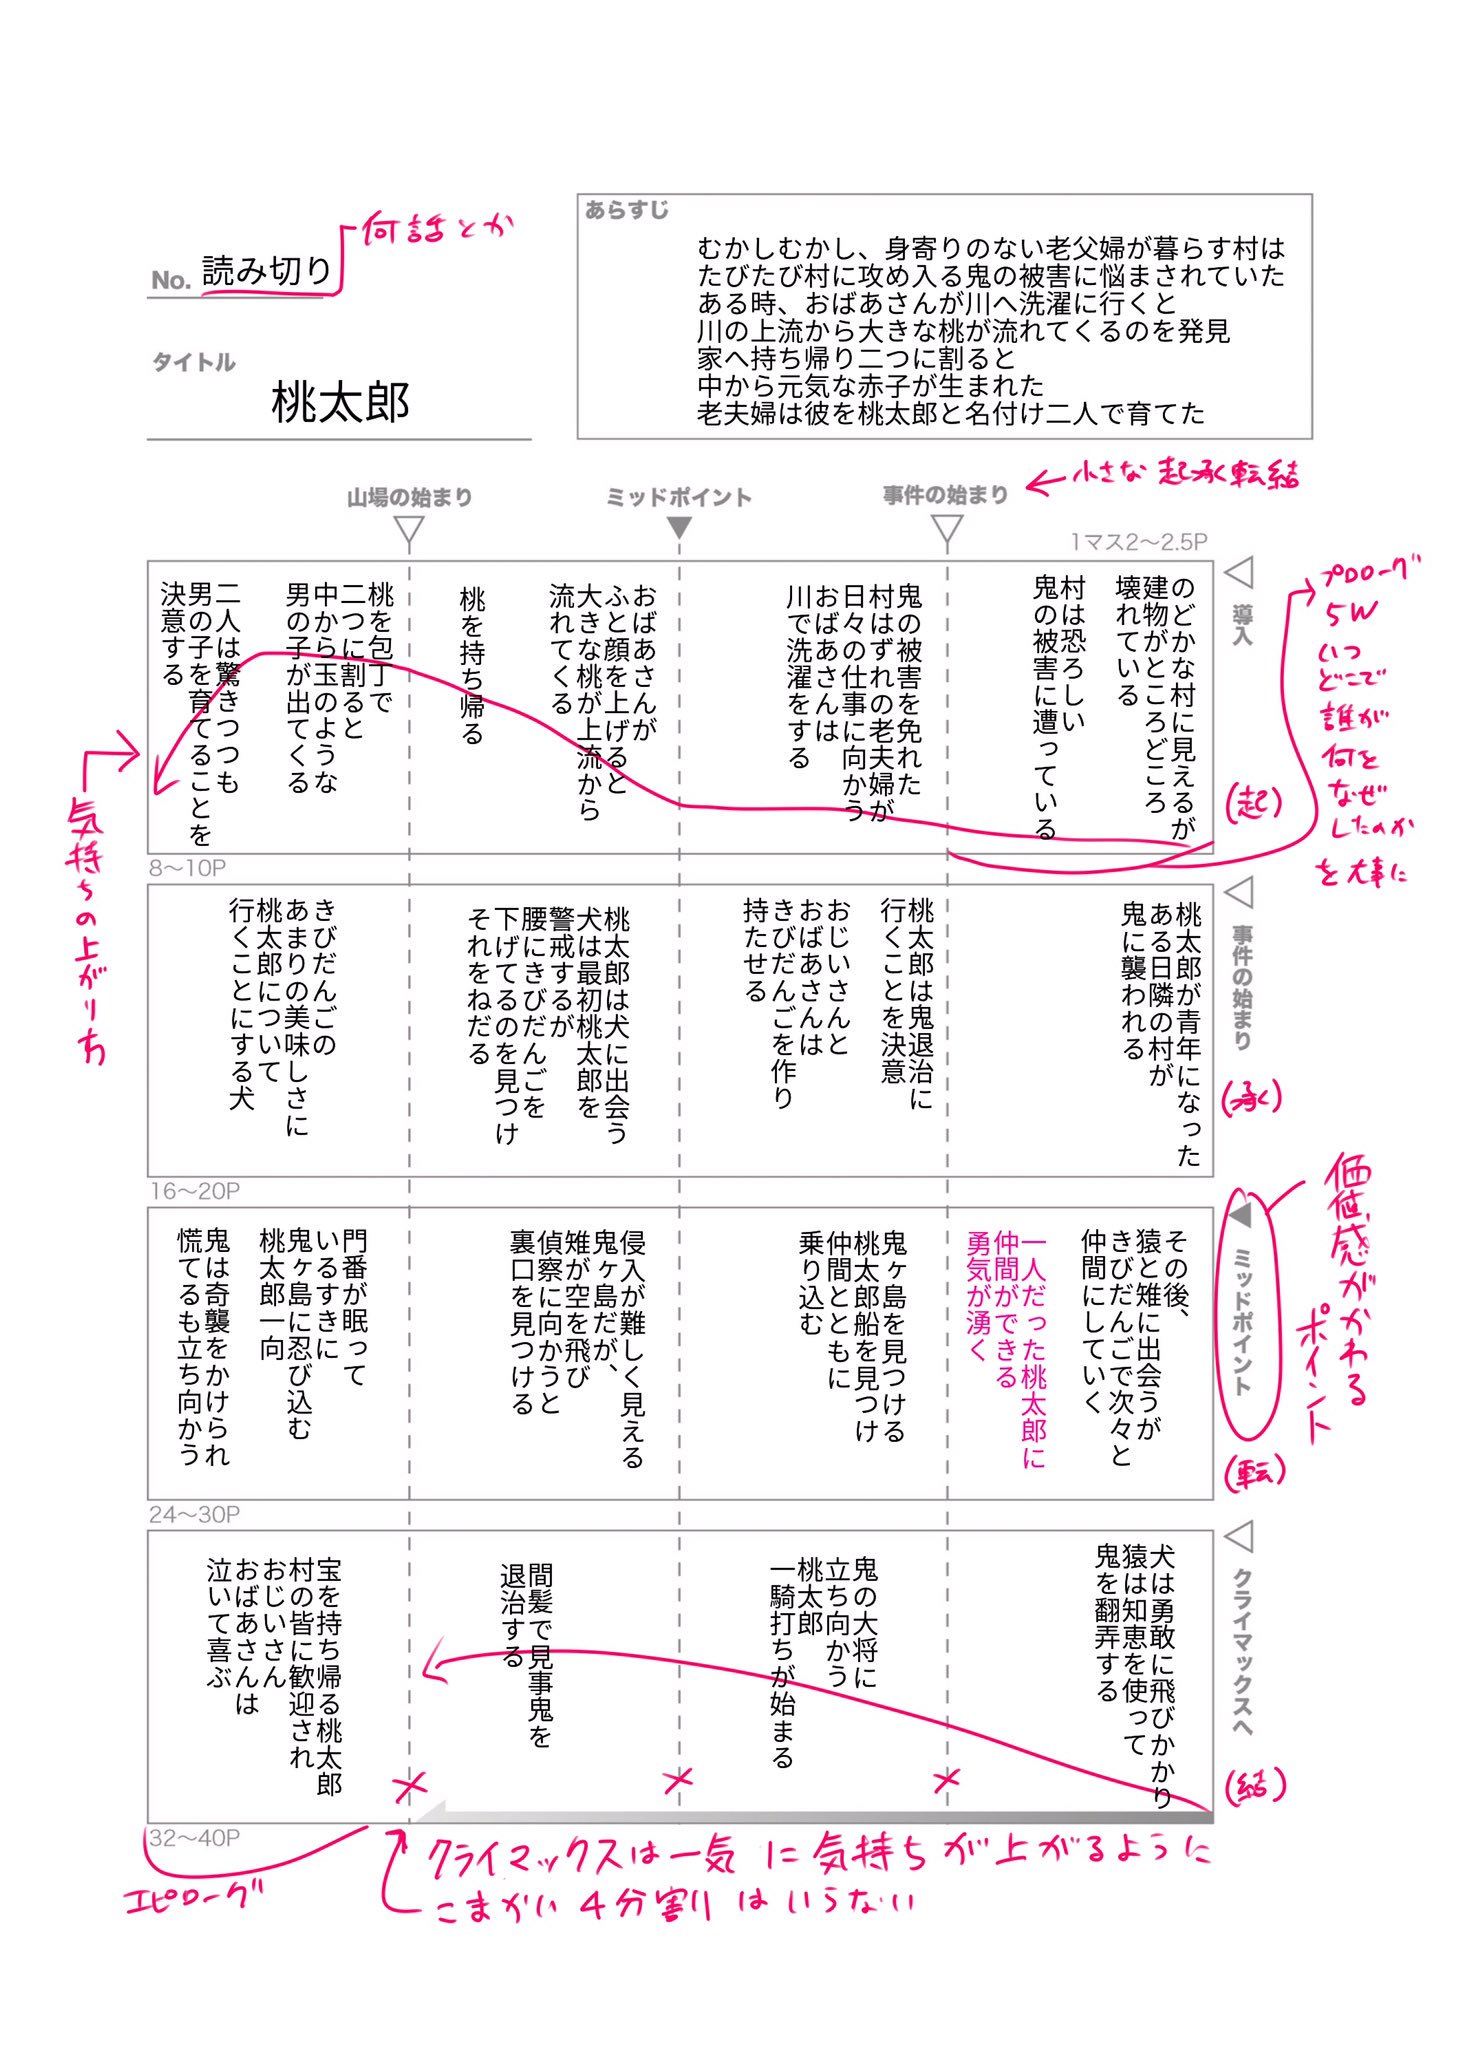 No. 読み切り
何話とか
タイトル
桃太郎
あらすじ
むかしむかし、身寄りのない老父婦が暮らす村は
たびたび村に攻め入る鬼の被害に悩まされていた
ある時、おばあさんが川へ洗濯に行くと
川の上流から大きな桃が流れてくるのを発見
家へ持ち帰り二つに割ると
中から元気な赤子が生まれた
老夫婦は彼を桃太郎と名付け二人で育てた
小さな起承転結
事件の始まり
ミッドポイント
山場の始まり
1マス2〜2.5P
導入
(起)
プロローグ
5W
いつ
どこで
誰が
何を
なぜ
したのか
を大事に
のどかな村に見えるが
建物がところどころ
壊れている
村は恐ろしい
鬼の被害に遭っている
鬼の被害を免れた
村はずれの老夫婦が
日々の仕事に向かう
おばあさんは
川で洗濯をする
おばあさんが
ふと顔を上げると
大きな桃が上流から
流れてくる
桃を持ち帰る
桃を包丁で
二つに割ると
中から玉のような
男の子が出てくる
二人は驚きつつも
男の子を育てることを
決意する
気持ちの上がり方
8〜10P
事件の始まり
(承)
桃太郎が青年になった
ある日隣の村が
鬼に襲われる
桃太郎は鬼退治に
行くことを決意
おじいさんと
おばあさんは
きびだんごを作り
持たせる
桃太郎は犬に出会う
犬は最初桃太郎を
警戒するが
腰にきびだんごを
下げてるのを見つけ
それをねだる
きびだんごの
あまりの美味しさに
桃太郎について
行くことにする犬
16〜20P
ミッドポイント
(転)
価値感がかわる
ポイント
その後、
猿と雉に出会うが
きびだんごで次々と
仲間にしていく
一人だった桃太郎に
仲間ができる
勇気が湧く
鬼ヶ島を見つける
桃太郎船を見つけ
仲間とともに
乗り込む
侵入が難しく見える
鬼ヶ島だが、
雉が空を飛び
偵察に向かうと
裏口を見つける
門番が眠って
いるすきに
鬼ヶ島に忍び込む
桃太郎一向
鬼は奇襲をかけられ
慌てるも立ち向かう
24〜30P
クライマックスへ
(結)
犬は勇敢に飛びかかり
猿は知恵を使って
鬼を翻弄する
鬼の大将に
立ち向かう
桃太郎
一騎打ちが始まる
間髪で見事鬼を
退治する
宝を持ち帰る桃太郎
村の皆に歓迎され
おじいさん
おばあさんは
泣いて喜ぶ
32〜40P
エピローグ
クライマックスは一気に気持ちが上がるように
こまかい4分割はいらない